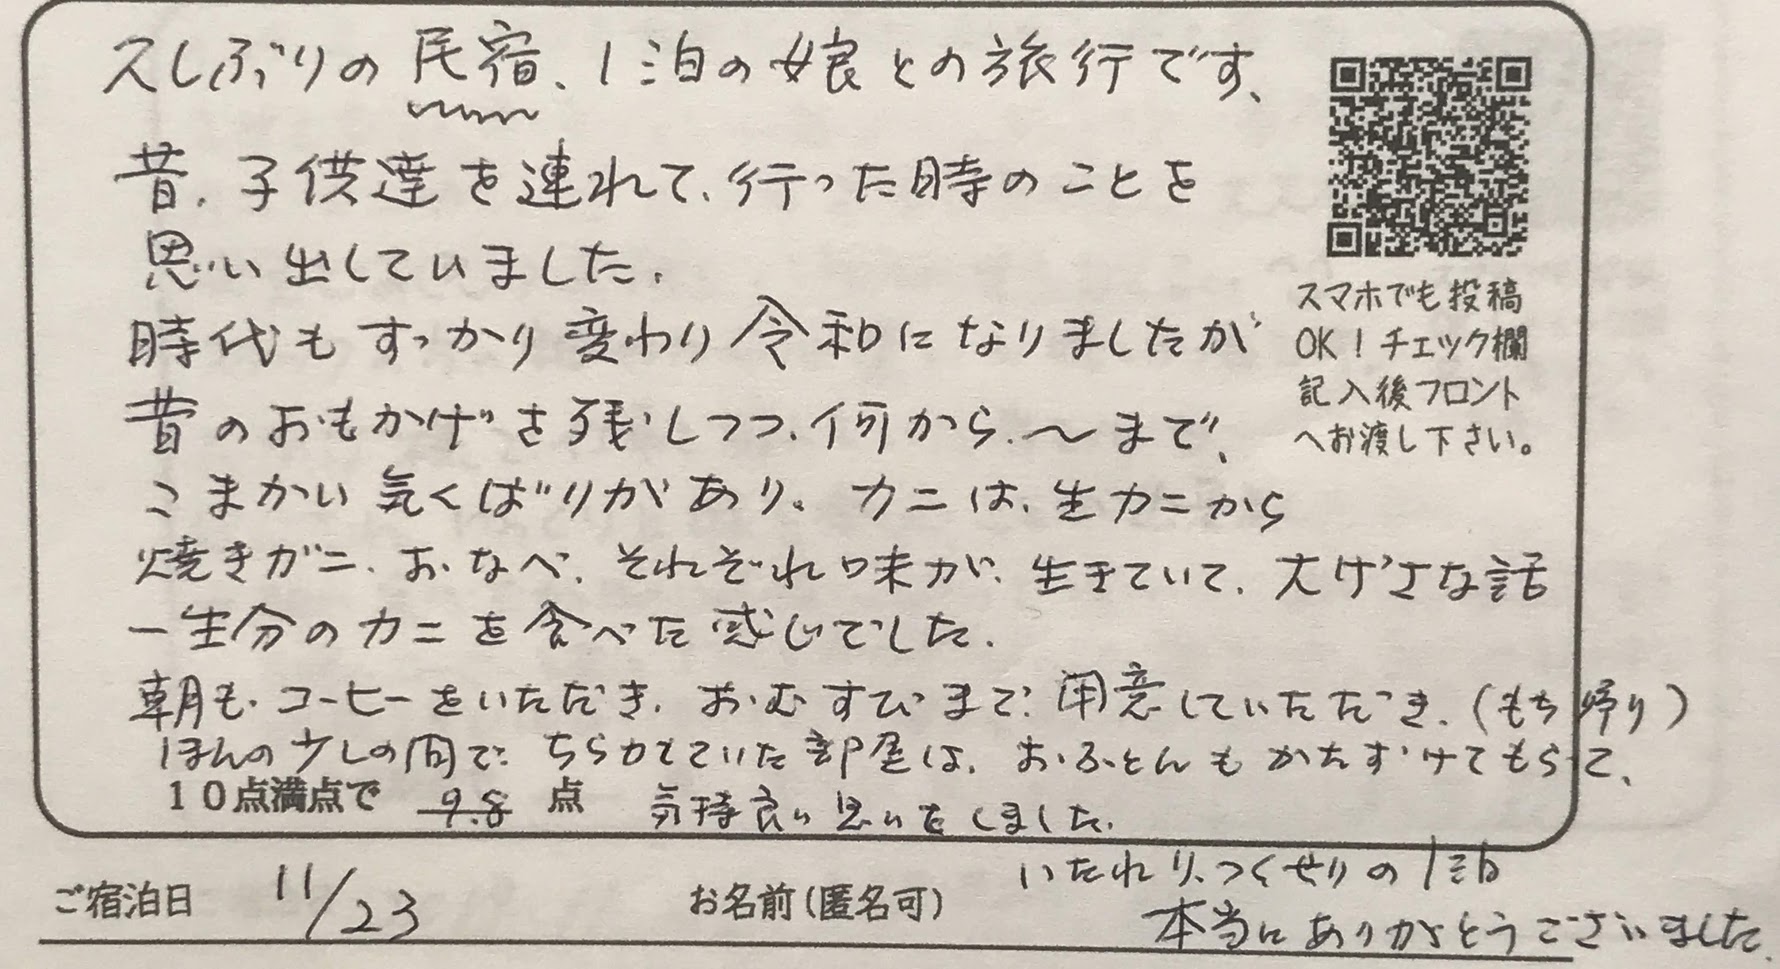 久しぶりの民宿、1泊の娘との旅行です、
昔、子供達を連れて、行った時のことを
思い出していました。
時代もすっかり変わり令和になりましたが
昔のおもかげを残しつつ、何から、〜まで、
こまかい気くばりがあり。カニは、生カニから
焼きガニ、おなべ、それぞれ味が、生きていて、大げさな話
一生分のカニを食べた感じでした。
朝も、コーヒーをいただき、おむすびまで用意していただき、(もち帰り)
ほんの少しの間で、ちらかしていた部屋は、おふとんもかたずけてもらって、
10点満点で 9.8 点 気持良い思いをしました。
いたれり、つくせりの1泊
本当にありがとうございました。
スマホでも投稿
OK!チェック欄
記入後フロント
へお渡し下さい。
ご宿泊日 11/23 お名前(匿名可)